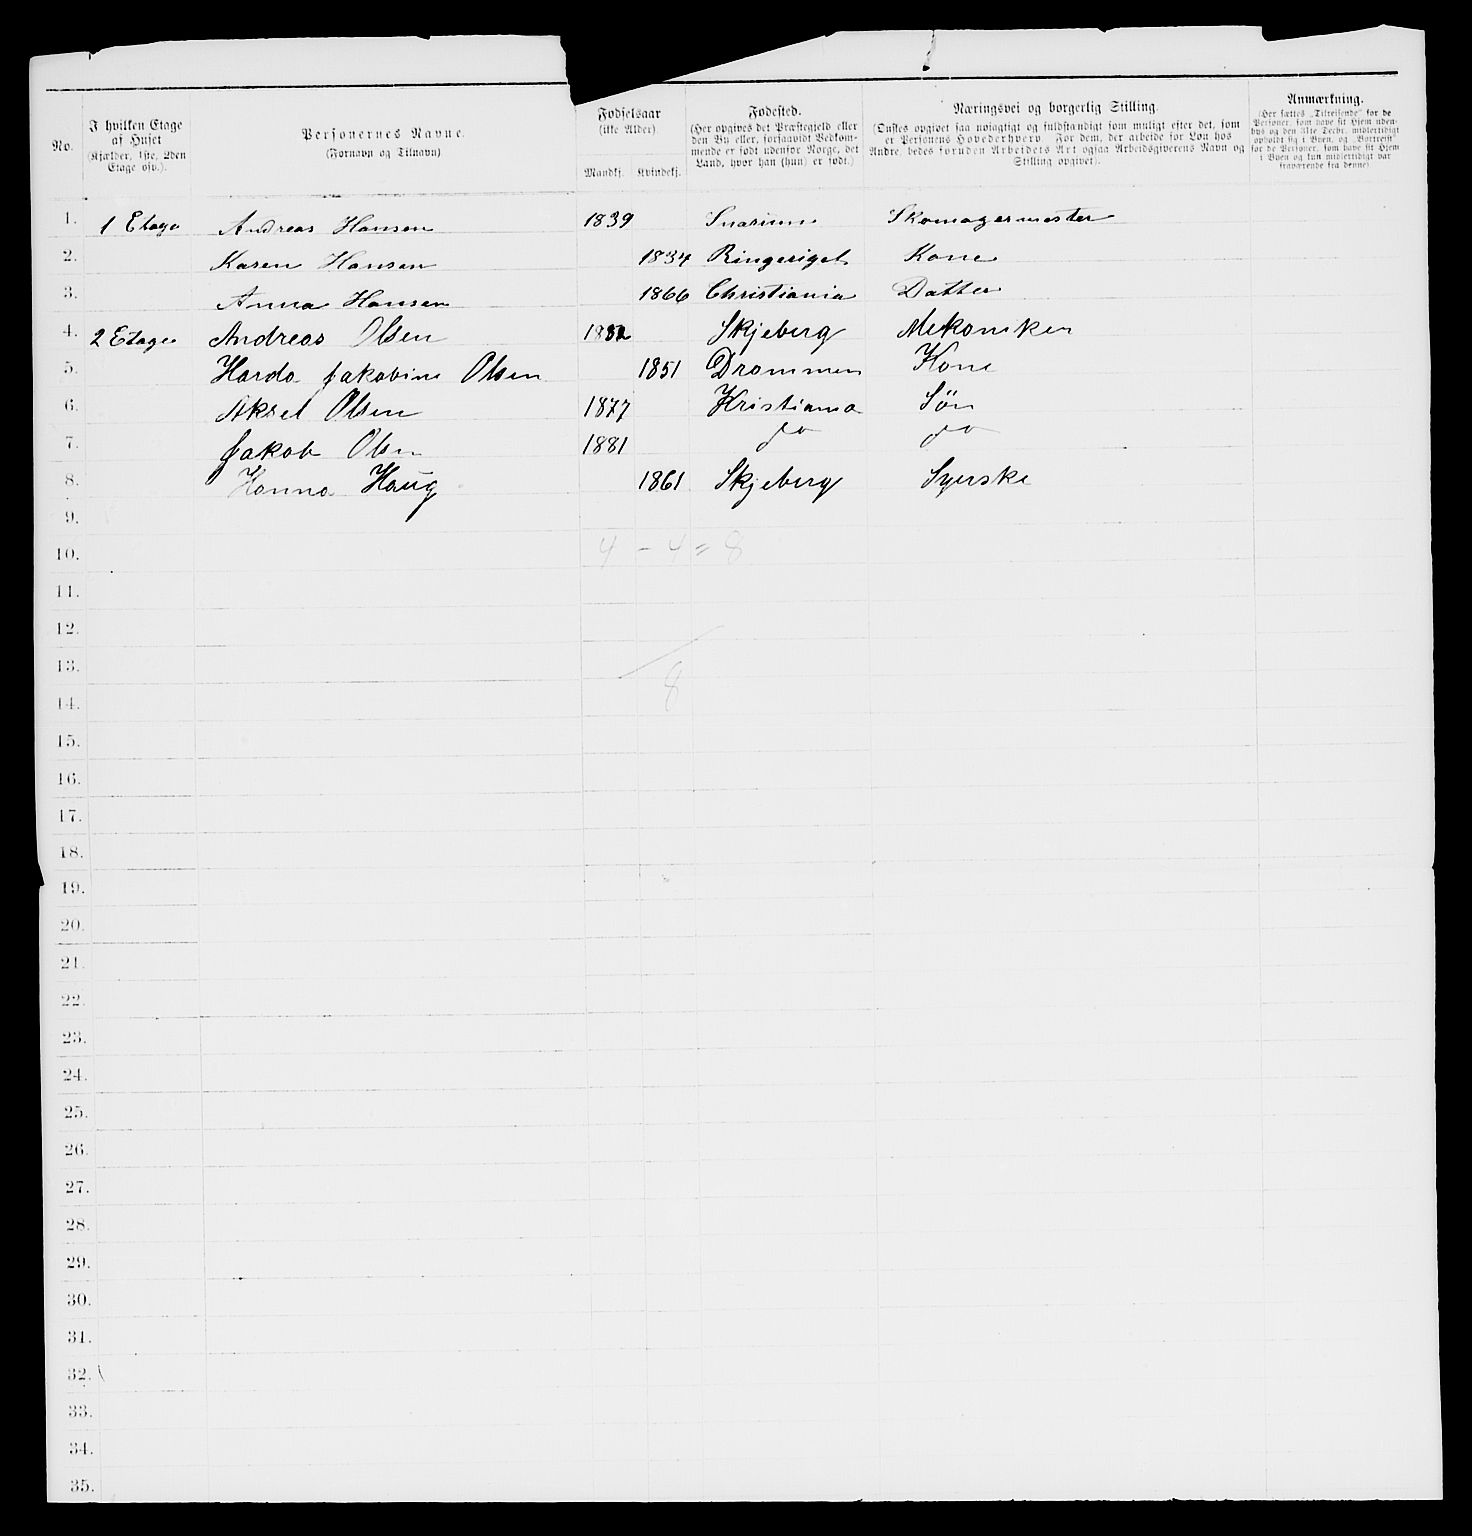 No.
I hvilken Etage
af Huset
(Kjælder, 1ste, 2den
Etage osv.).
Personernes Navne.
(Fornavn og Tilnavn)
Fødselsaar
(ikke Alder)
Mandkj. Kvindekj.
Fødested.
(Her opgives det Præstegjeld eller
den By eller, forsaavidt Vedkom-
mende er født udenfor Norge, det
Land, hvor han (hun) er født.)
Næringsvei og borgerlig Stilling.
(Ønskes opgivet saa nøiagtigt og fuldstændigt som muligt efter det, som
er Personens Hovederhverv. For dem, der arbeide for Løn hos
Andre, bedes foruden Arbeidets Art ogsaa Arbeidsgiverens Navn og
Stilling opgivet).
Anmærkning.
(Her sættes „Tilreisende“ for de
Personer, som have sit Hjem uden-
bys og den 31te Decbr. midlertidigt
opholdt sig i Byen, og „Bortreist“
for de Personer, som have sit Hjem
i Byen og kun midlertidigt var
fraværende fra denne)
1. 1 Etage Andreas Hansen 1839 Snarum Skomagermester
2. Karen Hansen 1834 Ringeriget Kone
3. Anna Hansen 1866 Christiania Datter
4. 2 Etage Andreas Olsen Skjeberg Mekaniker
5. Harda Jakobine Olsen 1851 Drammen Kone
6. Aksel Olsen 1877 Kristiania Søn
7. Jakob Olsen 1881 do do
8. Hanna Haug 1861 Skjeberg Syerske
9.
10. 4 - 4 = 8
11.
12.
13.
8
14.
15.
16.
17.
18.
19.
20.
21.
22.
23.
24.
25.
26.
27.
28.
29.
30.
31.
32.
33.
34.
35.